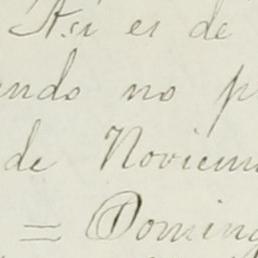 Así es de
endo no p
de Noviem
= Doming